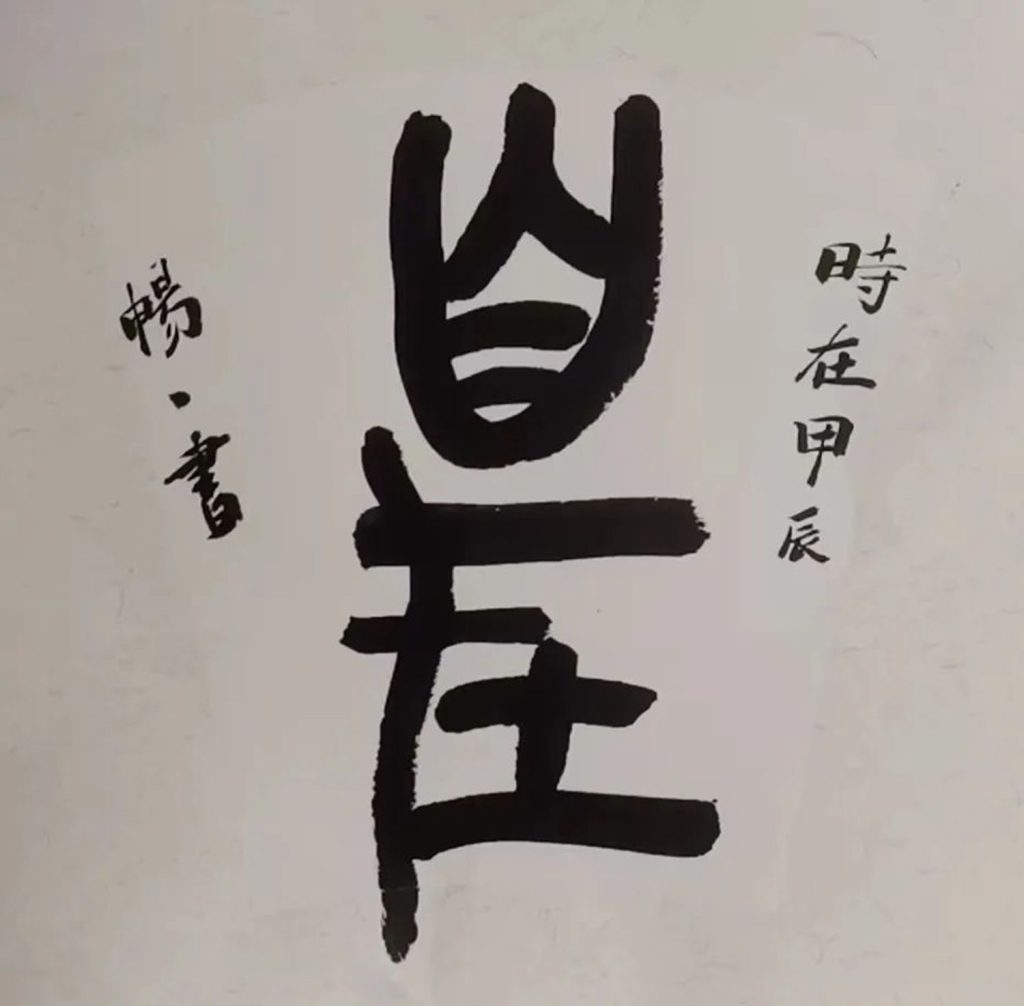 時在甲辰
自在
暢丶書